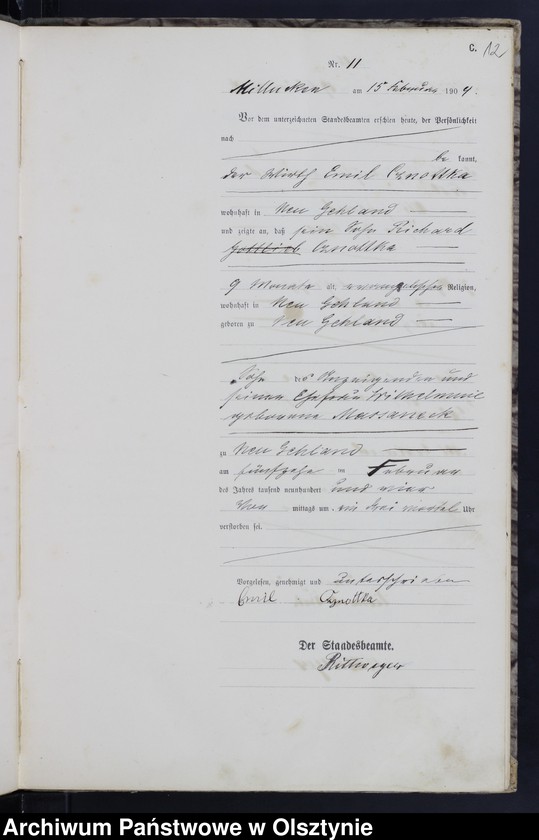 C. 12
Nr. 11
am 15 Februar 1904.
Vor dem unterzeichneten Standesbeamten erschien heute, der Persönlichkeit
nach
be kannt,
der Wirth Emil Cznottka
wohnhaft in Neu Gehland
und zeigte an, daß sein Sohn Richard
Gottlieb Cznottka
9 Monate alt, evangelischer Religion,
wohnhaft in Neu Gehland
geboren zu Neu Gehland
Sohn des Anzeigenden und
seiner Ehefrau Wilhelmine
geborene Massaneck
zu Neu Gehland
am fünfzehn ten Februar
des Jahres tausend neunhundert und vier
Vor mittags um ein drei viertel Uhr
verstorben sei.
Vorgelesen, genehmigt und unterschrieben
Emil Cznottka
Der Standesbeamte.
Archiwum Państwowe w Olsztynie